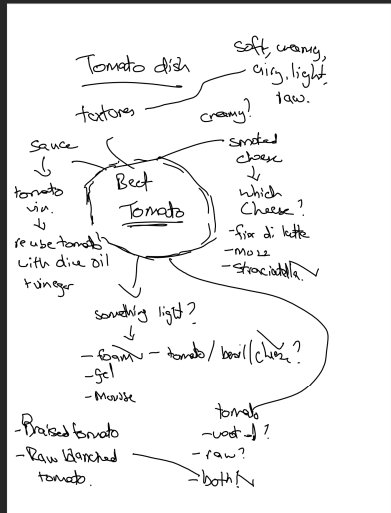 Tomato dish
soft, creamy,
airy, light,
raw.
textures
creamy?
sauce
smoked
cheese
Beef
Tomato
tomato
vin.
which
Cheese?
reuse tomato
with olive oil
+ vinegar
- fior di latte
- mozz
- straciatella
something light?
- foam - tomato / basil / cheese?
- gel
- mousse
tomato
- Braised tomato
- Raw blanched
tomato.
- raw?
- both!